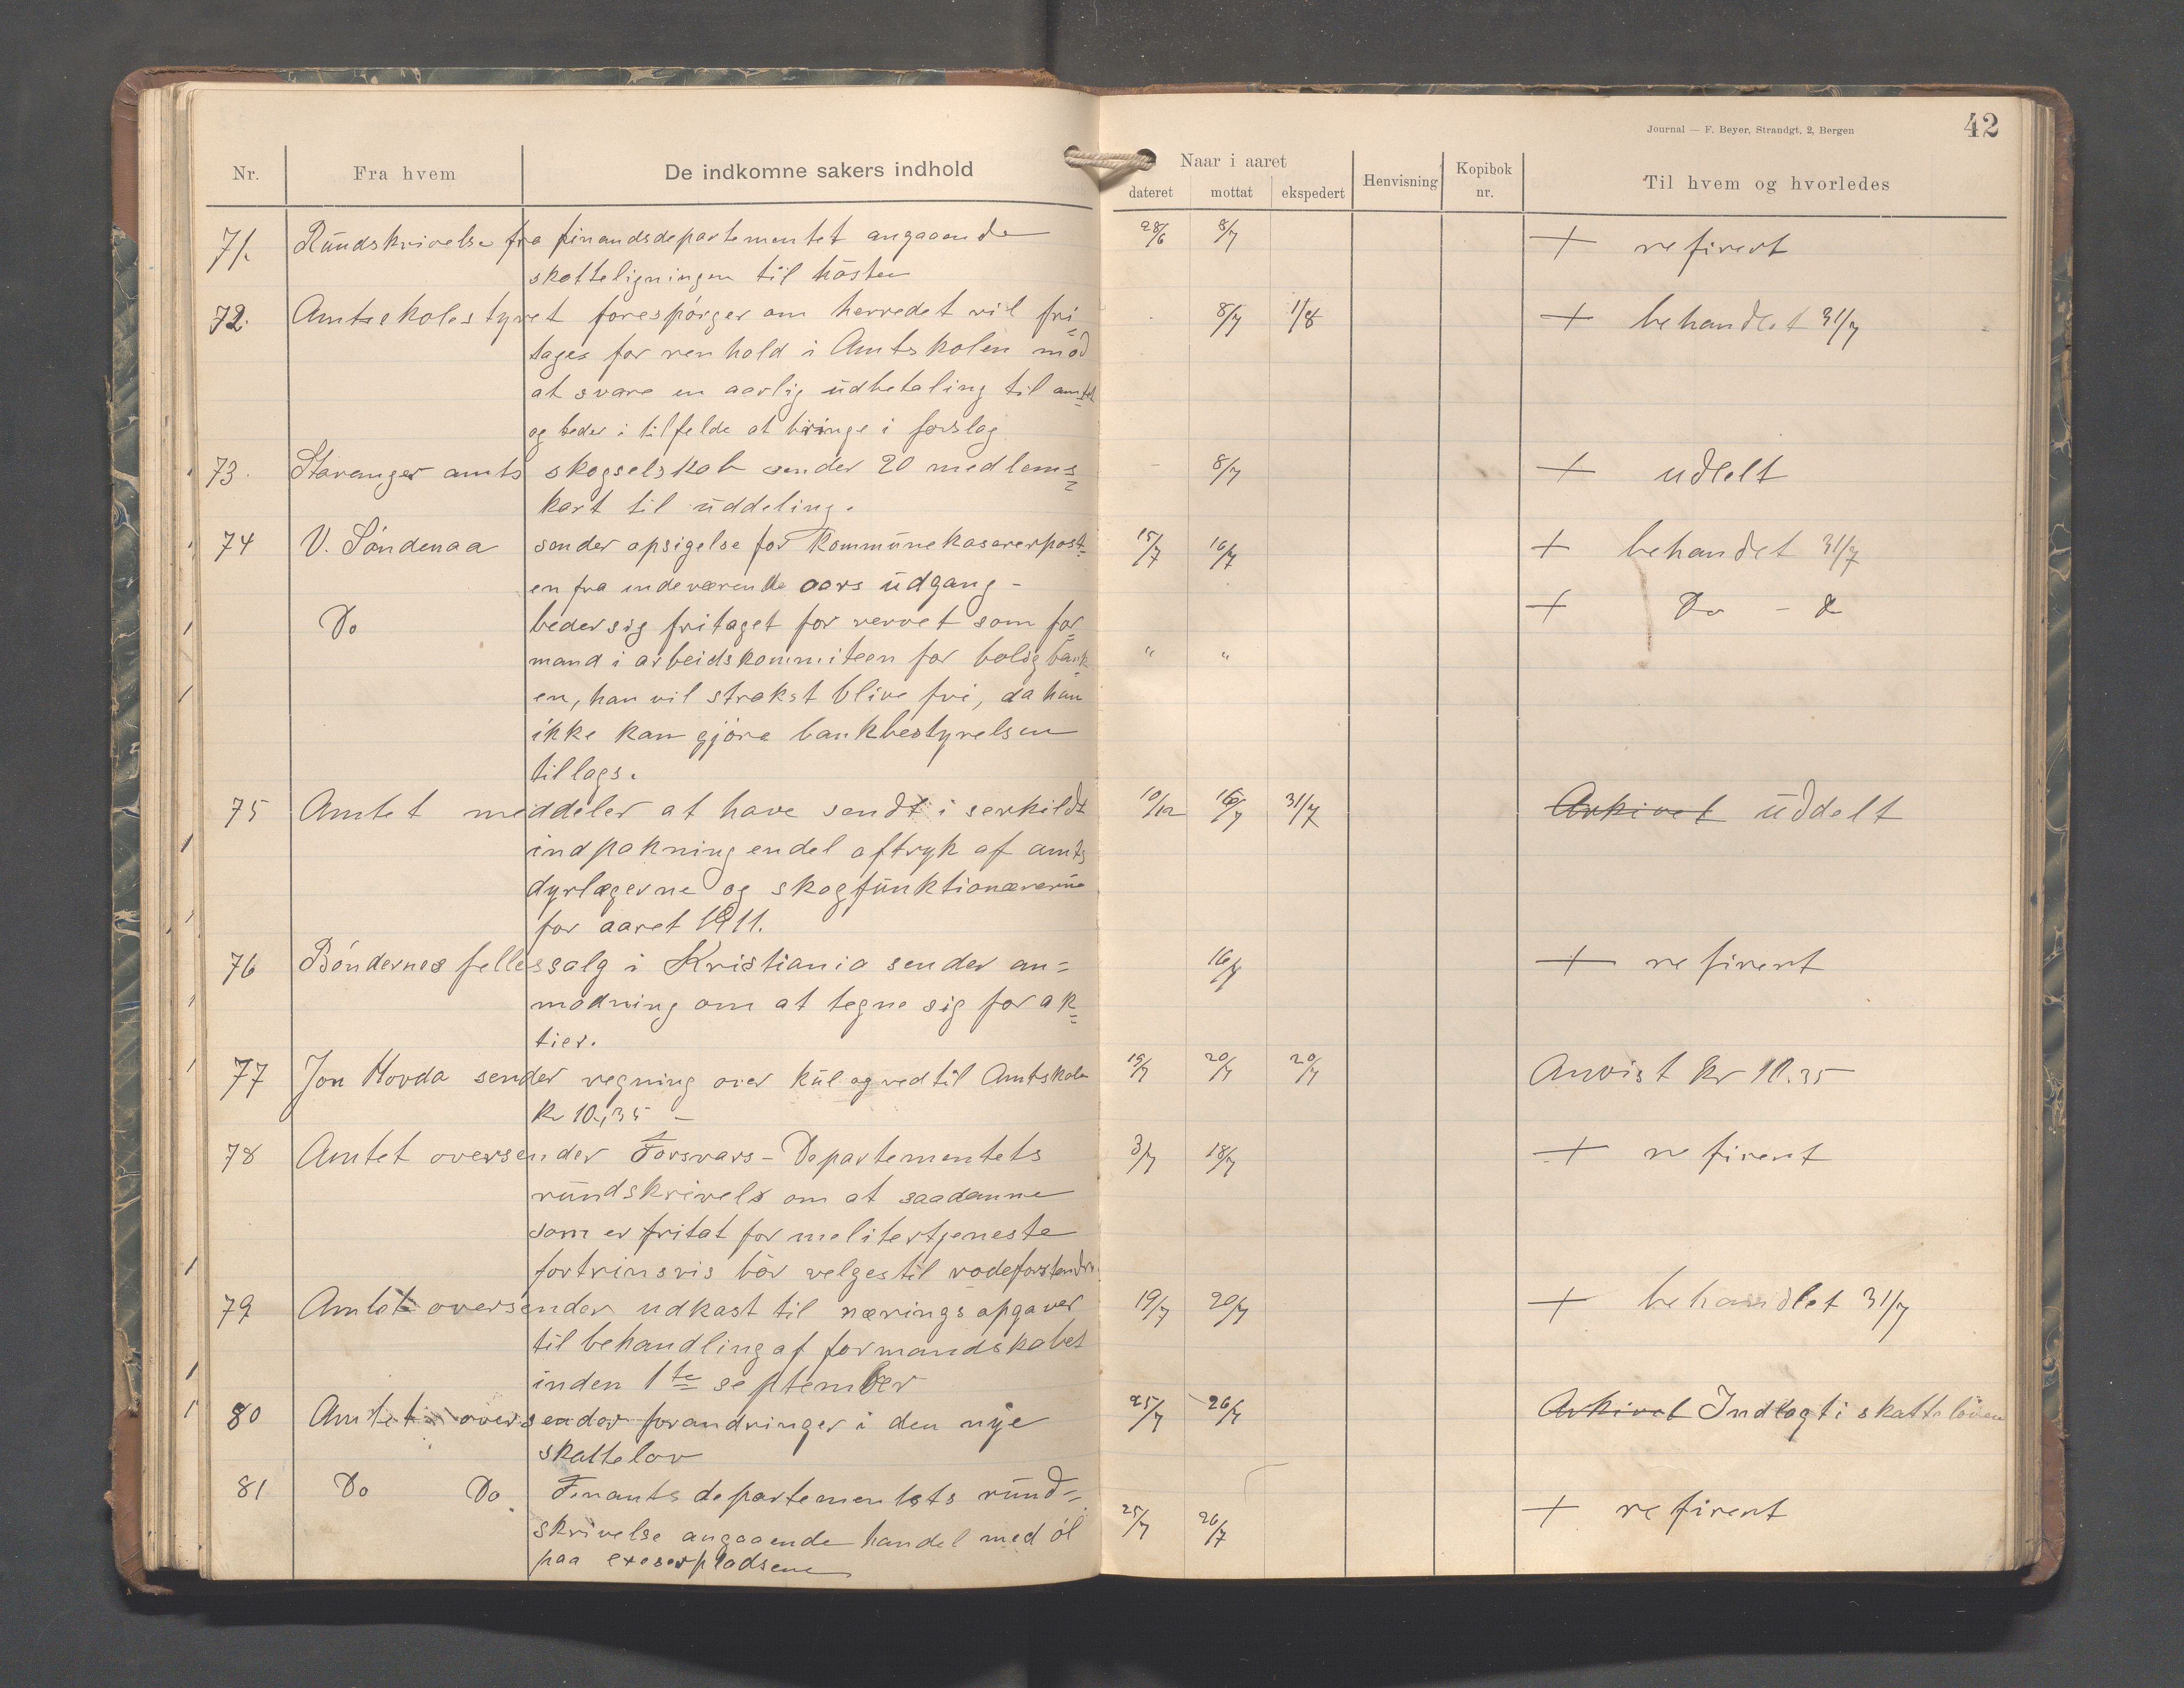 Journal — F. Beyer, Strandgt, 2, Bergen
42
Nr. Fra hvem De indkomne sakers indhold Naar i aaret Henvisning Kopibok nr. Til hvem og hvorledes
dateret mottat ekspedert
71. Rundskrivelse fra finandsdepartementet angaaende 28/6 8/7 + refirert
skatteligningen til høsten
72. Amtsskolestyret forespørger om herredet vil fri- 8/7 1/8 + behandlet 31/7
tages for renhold i Amtskolen mod
at svare en aarlig udbetaling til amtet
og beder i tilfelde at bringe i forslag
73. Stavanger amts skogselskab sender 20 medlems= 8/7 + udlelt
kort til uddeling.
74 V. Søndenaa sender opsigelse for kommunekasererpost= 15/7 16/7 + behandet 31/7
en fra indeværende aars udgang -
Do beder sig fritaget for vervet som for= + Do - d
mand i arbeidskommiteen for bolig bank " "
en, han vil strakst blive fri, da han
ikke kan gjøre bankbestyrelsen
tillags.
75 Amtet meddeler at have sendt i serkildt 10/12 16/7 31/7 Arkivet uddelt
indpakning endel aftryk af amts
dyrlægerne og skogfunktionærerne
for aaret 1911.
76 Bøndernes fellessalg i Kristiania sender an= 16/7 + refirert
modning om at tegne sig for ak=
tier.
77 Jon Hovda sender regning over kul og ved til Amtskole 19/7 20/7 20/7 Anvist kr 10.35
kr 10,35 -
78 Amtet oversender Forsvars-Departementets 3/7 18/7 + refirert
rundskrivels om at saadanne
som er fritat for melitertjeneste
fortrinsvis bør velges til rodeforstender
79 Amtet oversender udkast til nærings opgaver 19/7 20/7 + behandlet 31/7
til behandling af formandskabet
inden 1te september
80 Amtet oversender forandringer i den nye 25/7 26/7 Arkivet Indlagt i skatteloven
skattelov
81 Do Do Finantsdepartementets rund= 25/7 26/7 + refirert
skrivelse angaaende handel med øl
paa exeserpladsene